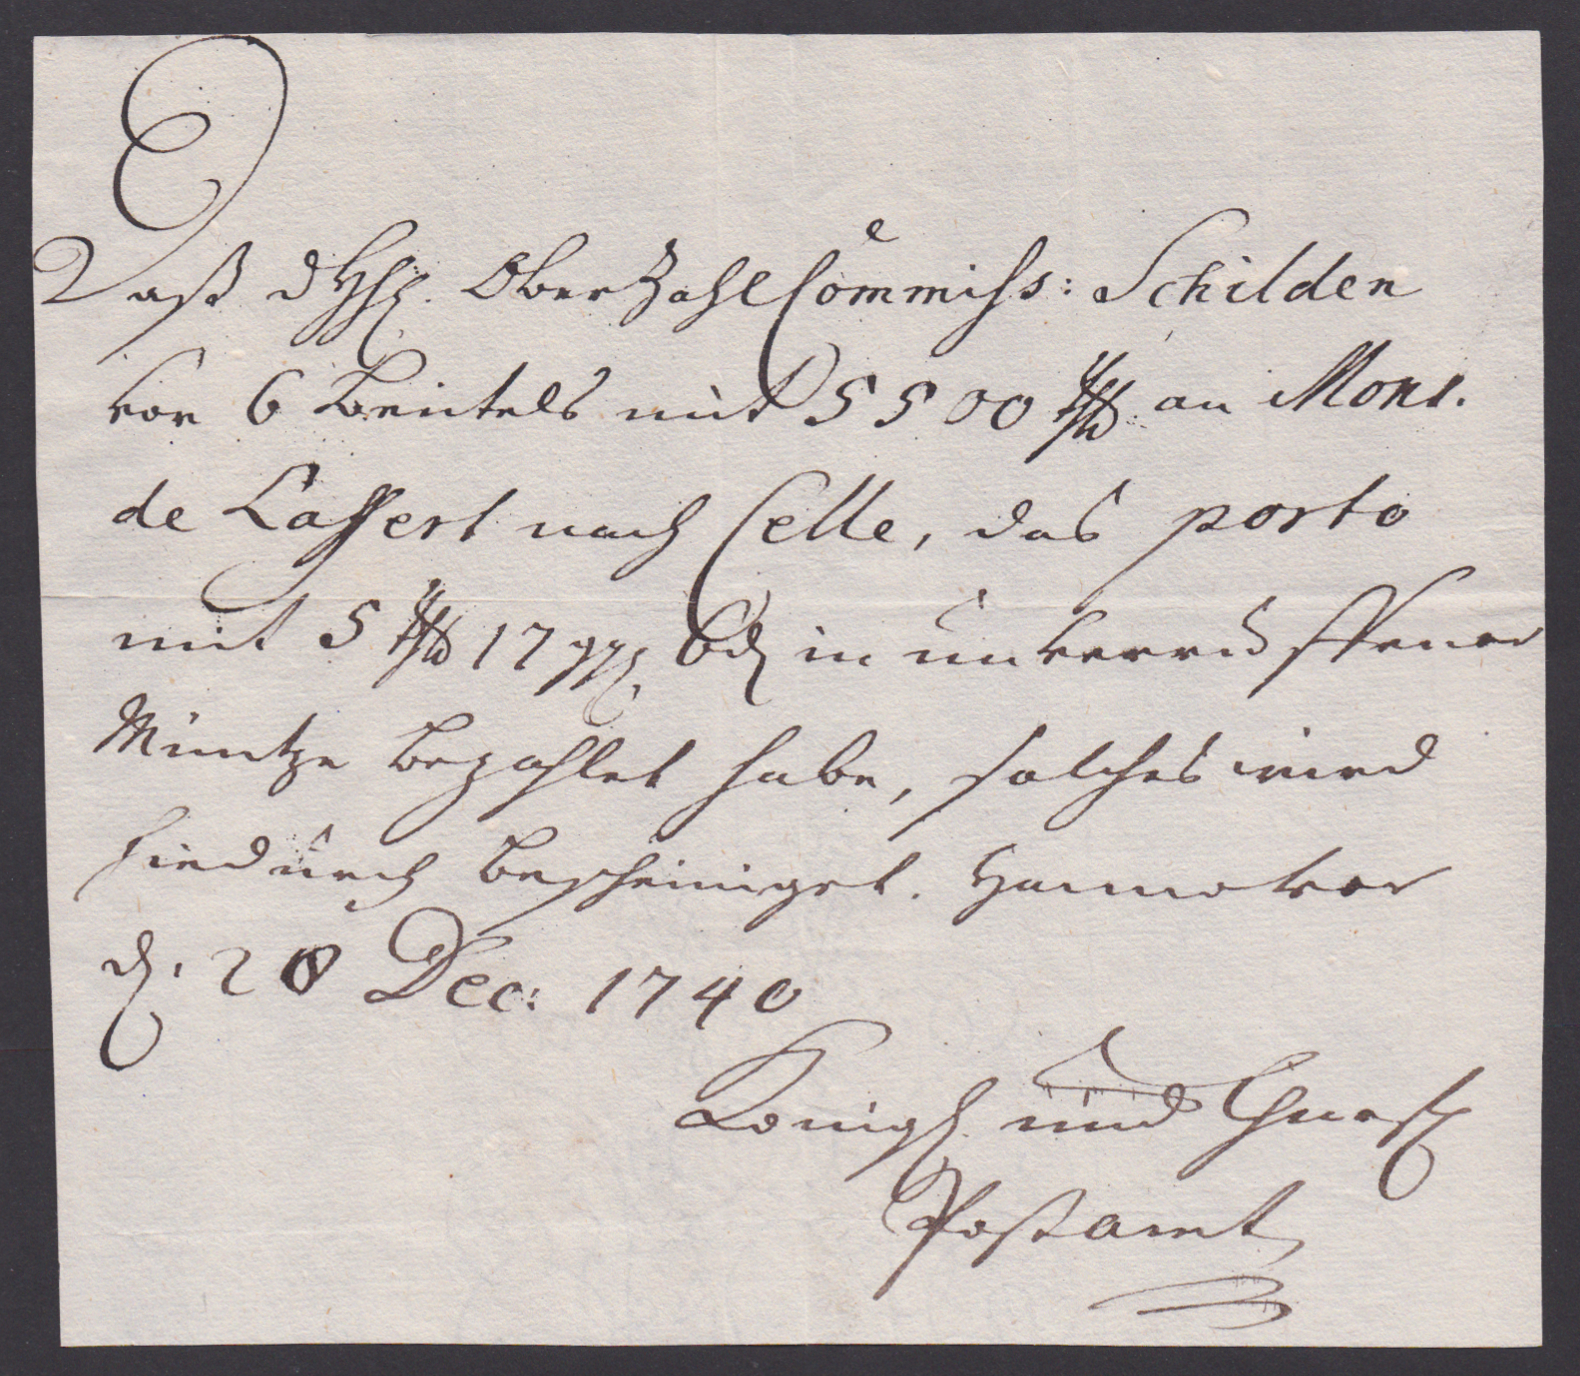 Daß d H. OberZahlCommiss: Schilden
vor 6 Beutels mit 5500 rth an Mons.
de Lassert nach Celle, das porto
mit 5 rth 17 ggr 6 d in unverruffener
Müntze bezahlet habe, solches wird
hiedurch bescheiniget. Hannover
d. 20 Dec: 1740
Königl und Churfl
Postamt